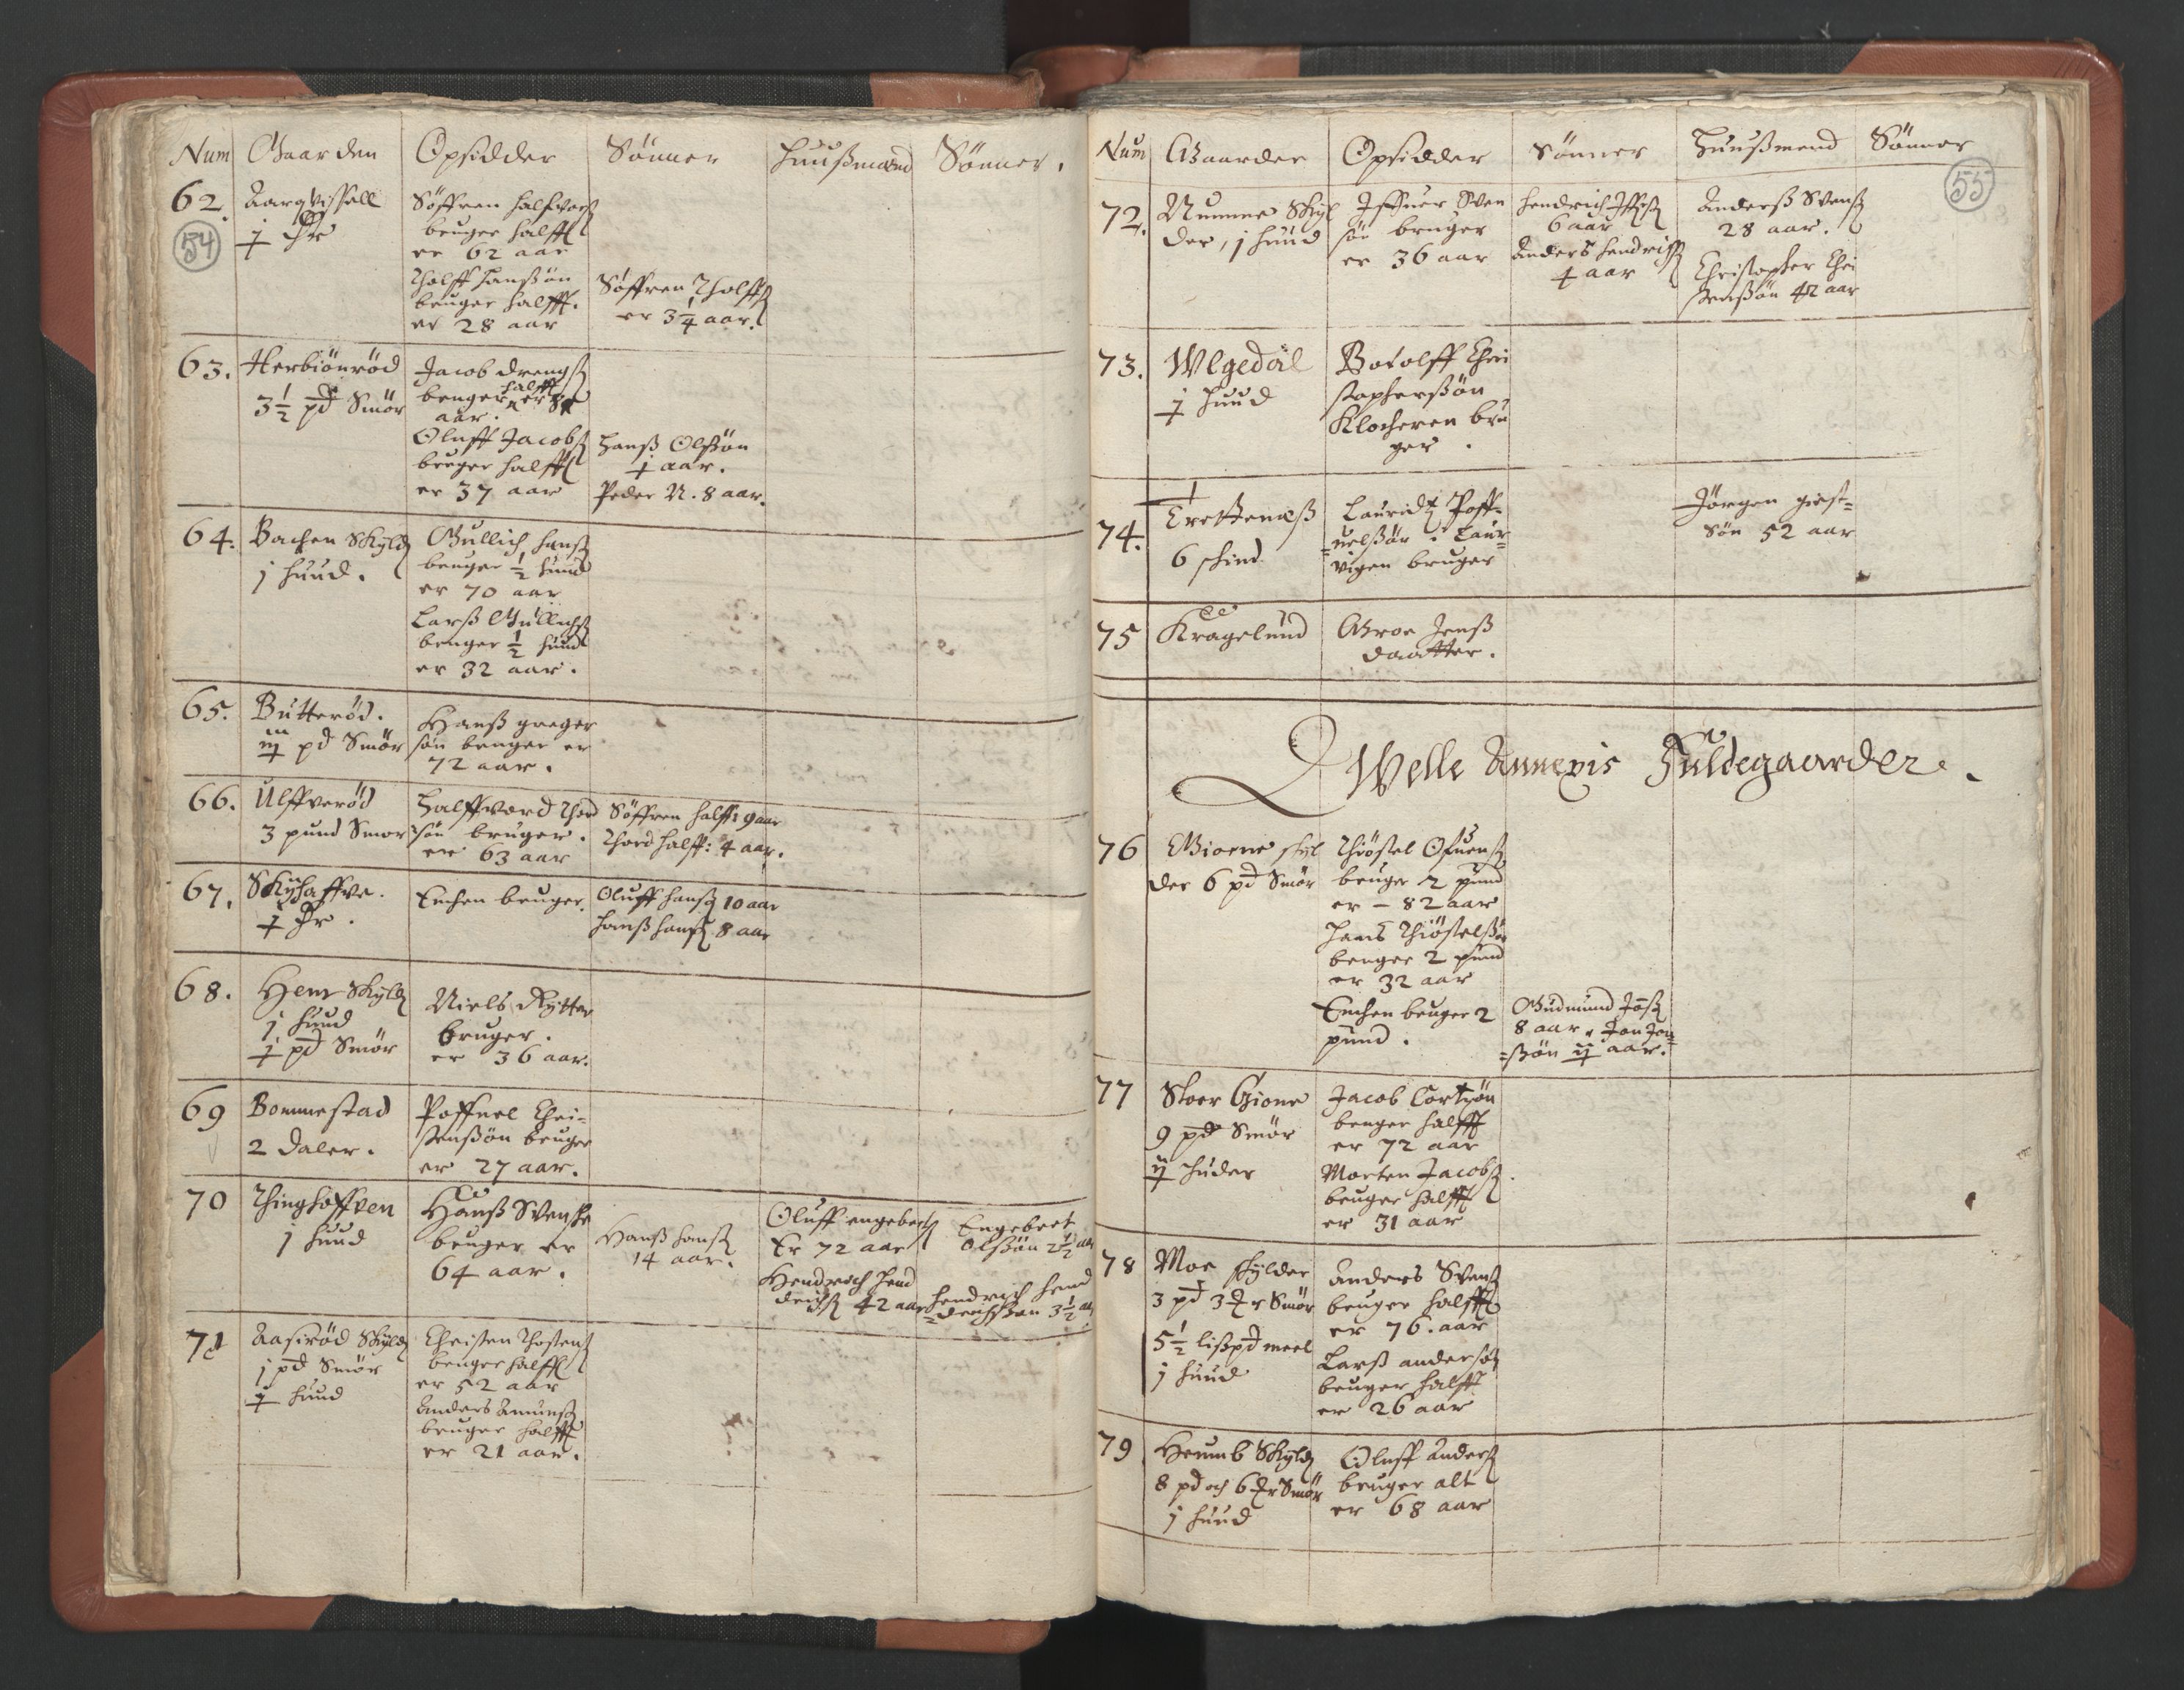 Num Gaarden Opsidder Sönner Huußmænd Sönner.
62. Aarqvissell
54
j
Söffren Halfvorß
bruger halfft
er 62 aar
Tholff Hanßön
bruger halfft.
er 28 aar
Söffren Tholffß
er 3¼ aar.
63. Herbiönröd
3½ pd Smör
Jacob Drengß
bruger halfft er
aar.
Oluff Jacobß
bruger halfft
er 37 aar
Hanß Olßön
j aar.
Peder N. 8 aar.
64. Bachen Skyld
j huud.
Gullich Hanß
bruger ½ huud
er 70 aar
Larß Gullichß
bruger ½ huud
er 32 aar.
65. Butteröd.
iij pd Smör
Hanß greger
sön bruger er
72 aar.
66. Ulffveröd
3 pund Smör
Halffvord Thord
sön bruger.
er 63 aar
Söffren halff: 9 aar
Thord halff: 4 aar.
67. Skyhaffve.
j
Enchen bruger.
Oluff Hanß 10 aar
Hanß Hanß 8 aar
68. Hem Skyld
j huud
j pd Smör
Niels Rytter
bruger.
er 36 aar.
69 Bommestad
2 daler.
Poffuel Chri-
stenßön bruger
er 27 aar.
70 Thinghoffven
j huud
Hanß Svenske
bruger er
64 aar.
Hanß Hanß
14 aar.
Oluff engebertß
Er 72 aar
Hendrich Hend
richß 42 aar
Engebret
Olßön 2½ aar
Hendrich Hend
=drichßön 3½ aar
71 Aasiröd Skyld
j pd Smör
j huud
Christen Thostenß
bruger halfft
er 52 aar
Anders Amunß
bruger halfft
er 21 aar.
Num Gaarder Opsidder Sönner Huußmend Sönner
55
72. Numme Skyl
der, j huud
Iffuer Sven
sön bruger
er 36 aar
Hendrich Iffrß
6 aar
Anders Hendrichß
4 aar
Anderß Svenß
28 aar.
Christopher Chri
stenßön 42 aar
73. Wlgedal
j huud
Botolff Chri
stopherßön
Klocheren bru
ger.
74. Trettenæß
6 skind
Lauridtz Poff-
=uelßön i Laur=
vigen bruger
Jörgen giest=
sön 52 aar
75 Kragelund
Groe Jenß
daatter.
Welle Annexis Fuldegaarder.
76 Gioene skyl
der 6 pd Smör
Thiöstel Ofuenß
bruger 2 pund
er - 82 aar
Jens Thiöstelßön
bruger 2 pund
er 32 aar
Enchen bruger 2
pund.
Gudmund Jonß
8 aar. Jon Jon=
=ßön ij aar.
77 Stoer Gione
9 pd Smör
ij huder
Jacob Cortzön
bruger halfft
er 72 aar
Morten Jacobß
bruger halfft
er 31 aar
78 Moe skylder
3 pd 3 Smör
5½ lißpd meel
j huud
Anders Svenß
bruger halfft
er 76. aar
Larß andersön
bruger halfft
er 26 aar
79 Heumb Skyld
8 pd och 6 Smör
j huud
Oluff Anderß
bruger alt
er 68 aar